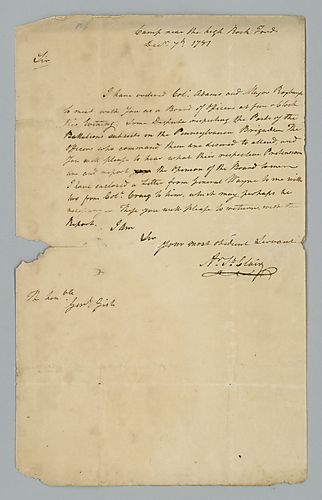 Camp near the high Rock Ford
Decr. 7th. 1781
Sir
I have ordered Colo. Adams and Major Roxburgh
to meet with You as a Board of Officers at four o Clock
this Evening. Some Disputes respecting the Posts of the
Battalions subsists in the Pennsylvania Brigade. The
Officers who command them are desired to attend, and
You will please to hear what their respective Pretensions
are and report the Opinion of the Board
I have enclosed a Letter from General Wayne to me with
two from Colo. Craig to him, which may perhaps be
You will please to return with the
Report. I am
Sir
Your most obedient Servant
Ar. St. Clair
The honble
Genl. Gist